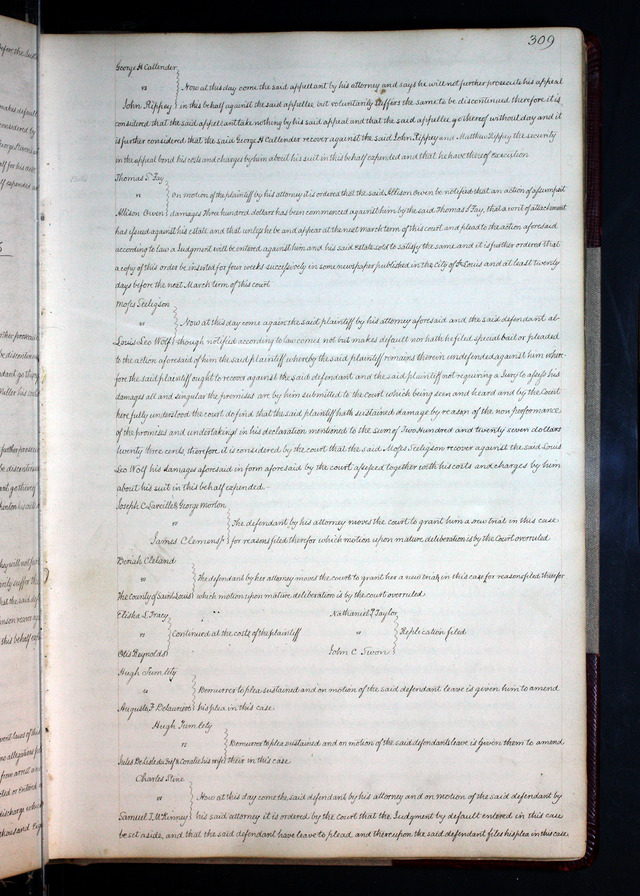 309
George H Callender
vs } Now at this day come the said appellant by his attorney and says he will not further prosecute his appeal
John Rippey } in this behalf against the said appellee but voluntarily suffers the same to be discontinued therefore it is
considered that the said appellant take nothing by his said appeal and that the said appellee go thereof without day and it
is further considered that the said George H Callender recover against the said John Rippey and Matthew Rippey the security
in the appeal bond his costs and charges by him about his suit in this behalf expended and that he have thereof execution
Thomas S. Fay
vs } On motion of the plaintiff by his attorney it is ordered that the said Allison Owen be notified that an action of assumpsit
Allison Owen } damages Three hundred dollars has been commenced against him by the said Thomas S Fay, that a writ of attachment
has issued against his estate and that unless he be and appear at the next march term of this court and plead to the action aforesaid
according to law a Judgment will be entered against him and his said estate sold to satisfy the same and it is further ordered that
a copy of this order be inserted for four weeks successively in some newspaper published in the city of St Louis and at least twenty
days before the next March term of this court
Moses Seeligson
vs } Now at this day come again the said plaintiff by his attorney aforesaid and the said defendant al-
Louis Leo Wolf } though notified according to law comes not but makes default nor hath he filed special bail or pleaded
to the action aforesaid of him the said plaintiff whereby the said plaintiff remains therein undefended against him wher-
fore the said plaintiff ought to recover against the said defendant and the said plaintiff not requiring a Jury to assess his
damages all and singular the premises are by him submitted to the Court which being seen and heard and by the Court
here fully understood the court do find that the said plaintiff hath sustained damage by reason of the non performance
of the promises and undertakings in his declaration mentioned to the sum of Two Hundred and twenty seven dollars
twenty three cents therefore it is considered by the court that the said Moses Seeligson recover against the said Louis
Leo Wolf his damages aforesaid in form aforesaid by the court assessed together with his costs and charges by him
about his suit in this behalf expended.
Joseph C. Laveille & George Morton
vs } The defendant by his attorney moves the court to grant him a new trial in this case
James Clemens Jr } for reasons filed therefor which motion upon mature deliberation is by the Court overruled
Beriah Cleland
vs } The defendant by her attorney moves the court to grant her a new trial in this case for reasons filed therefor
The County of Saint Louis } which motion upon mature deliberation is by the court overruled
Elisha L. Tracy
vs } Continued at the costs of the plaintiff
Otis Reynolds
Nathaniel P Taylor
vs } Replication filed
John C Swon
Hugh Tumlety
vs } Demurrer to plea sustained and on motion of the said defendant leave is given him to amend
Auguste F Delauriere } his plea in this case
Hugh Tumlety
vs } Demurrer to plea sustained and on motion of the said defendants leave is given them to amend
Jules Delisle & Coralie his wife } their in this case
Charles
vs } Now at this day come the said defendant by his attorney and on motion of the said defendant by
Samuel T. McKinney } his said attorney it is ordered by the court that the Judgment by default entered in this case
be set aside, and that the said defendant have leave to plead and thereupon the said defendant files his plea in this case